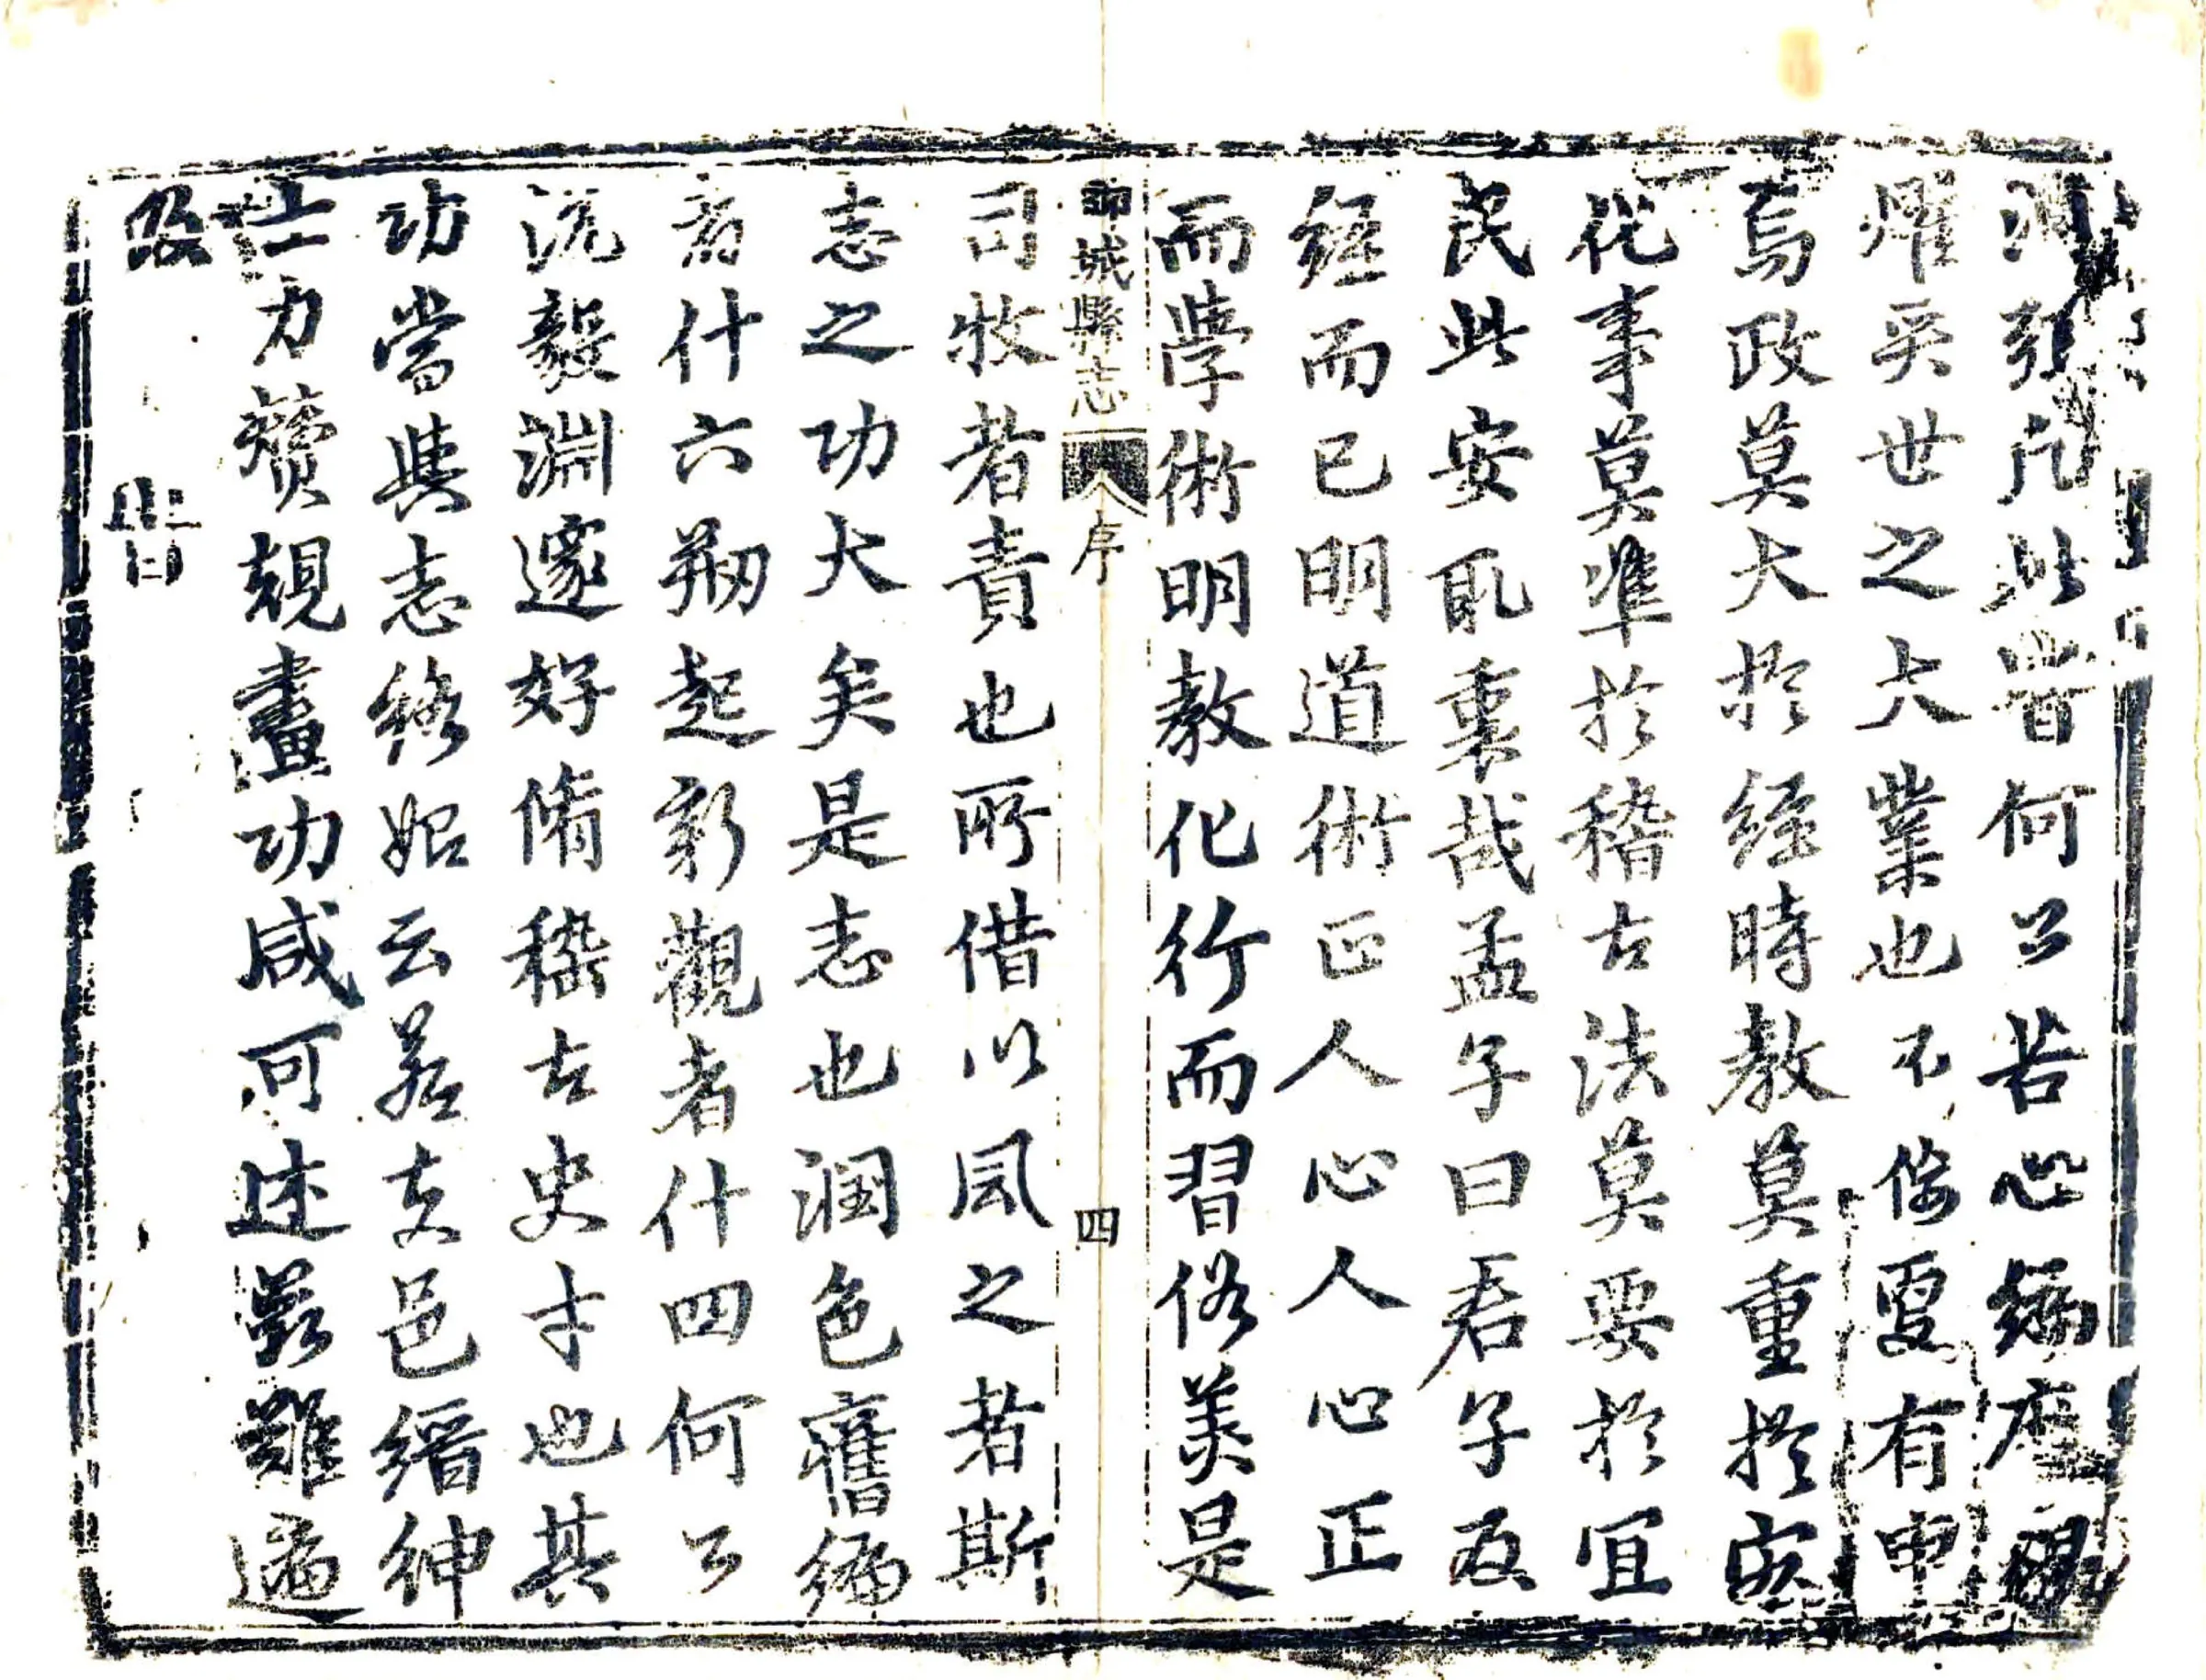 凡此皆何公苦心編摩
耀奕世之大業也不佞更有申
焉政莫大於經時教莫重於密
化事莫準於稽古法莫要於宜
民此安取衷哉孟子曰君子反
經而已明道術正人心人心正
而學術明教化行而習俗美是
鄆城縣志
序
四
司牧者責也所借以風之者斯
志之功大矣是志也潤色舊編
者什六刱起新觀者什四何公
沉毅淵邃好脩稽古史才也其
功當與志終始云若夫邑縉紳
士力贊規畫功咸可述最難遍